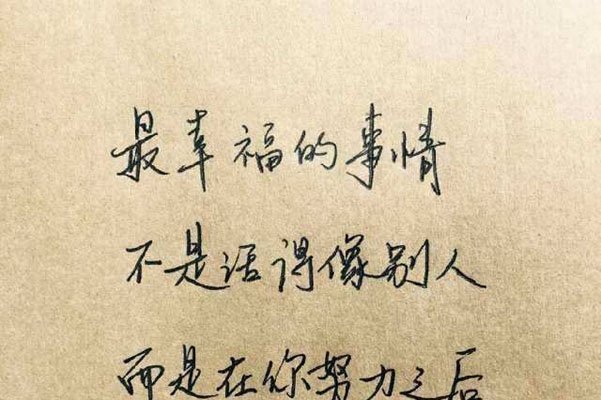 最幸福的事情
不是活得像别人
而是在你努力之后